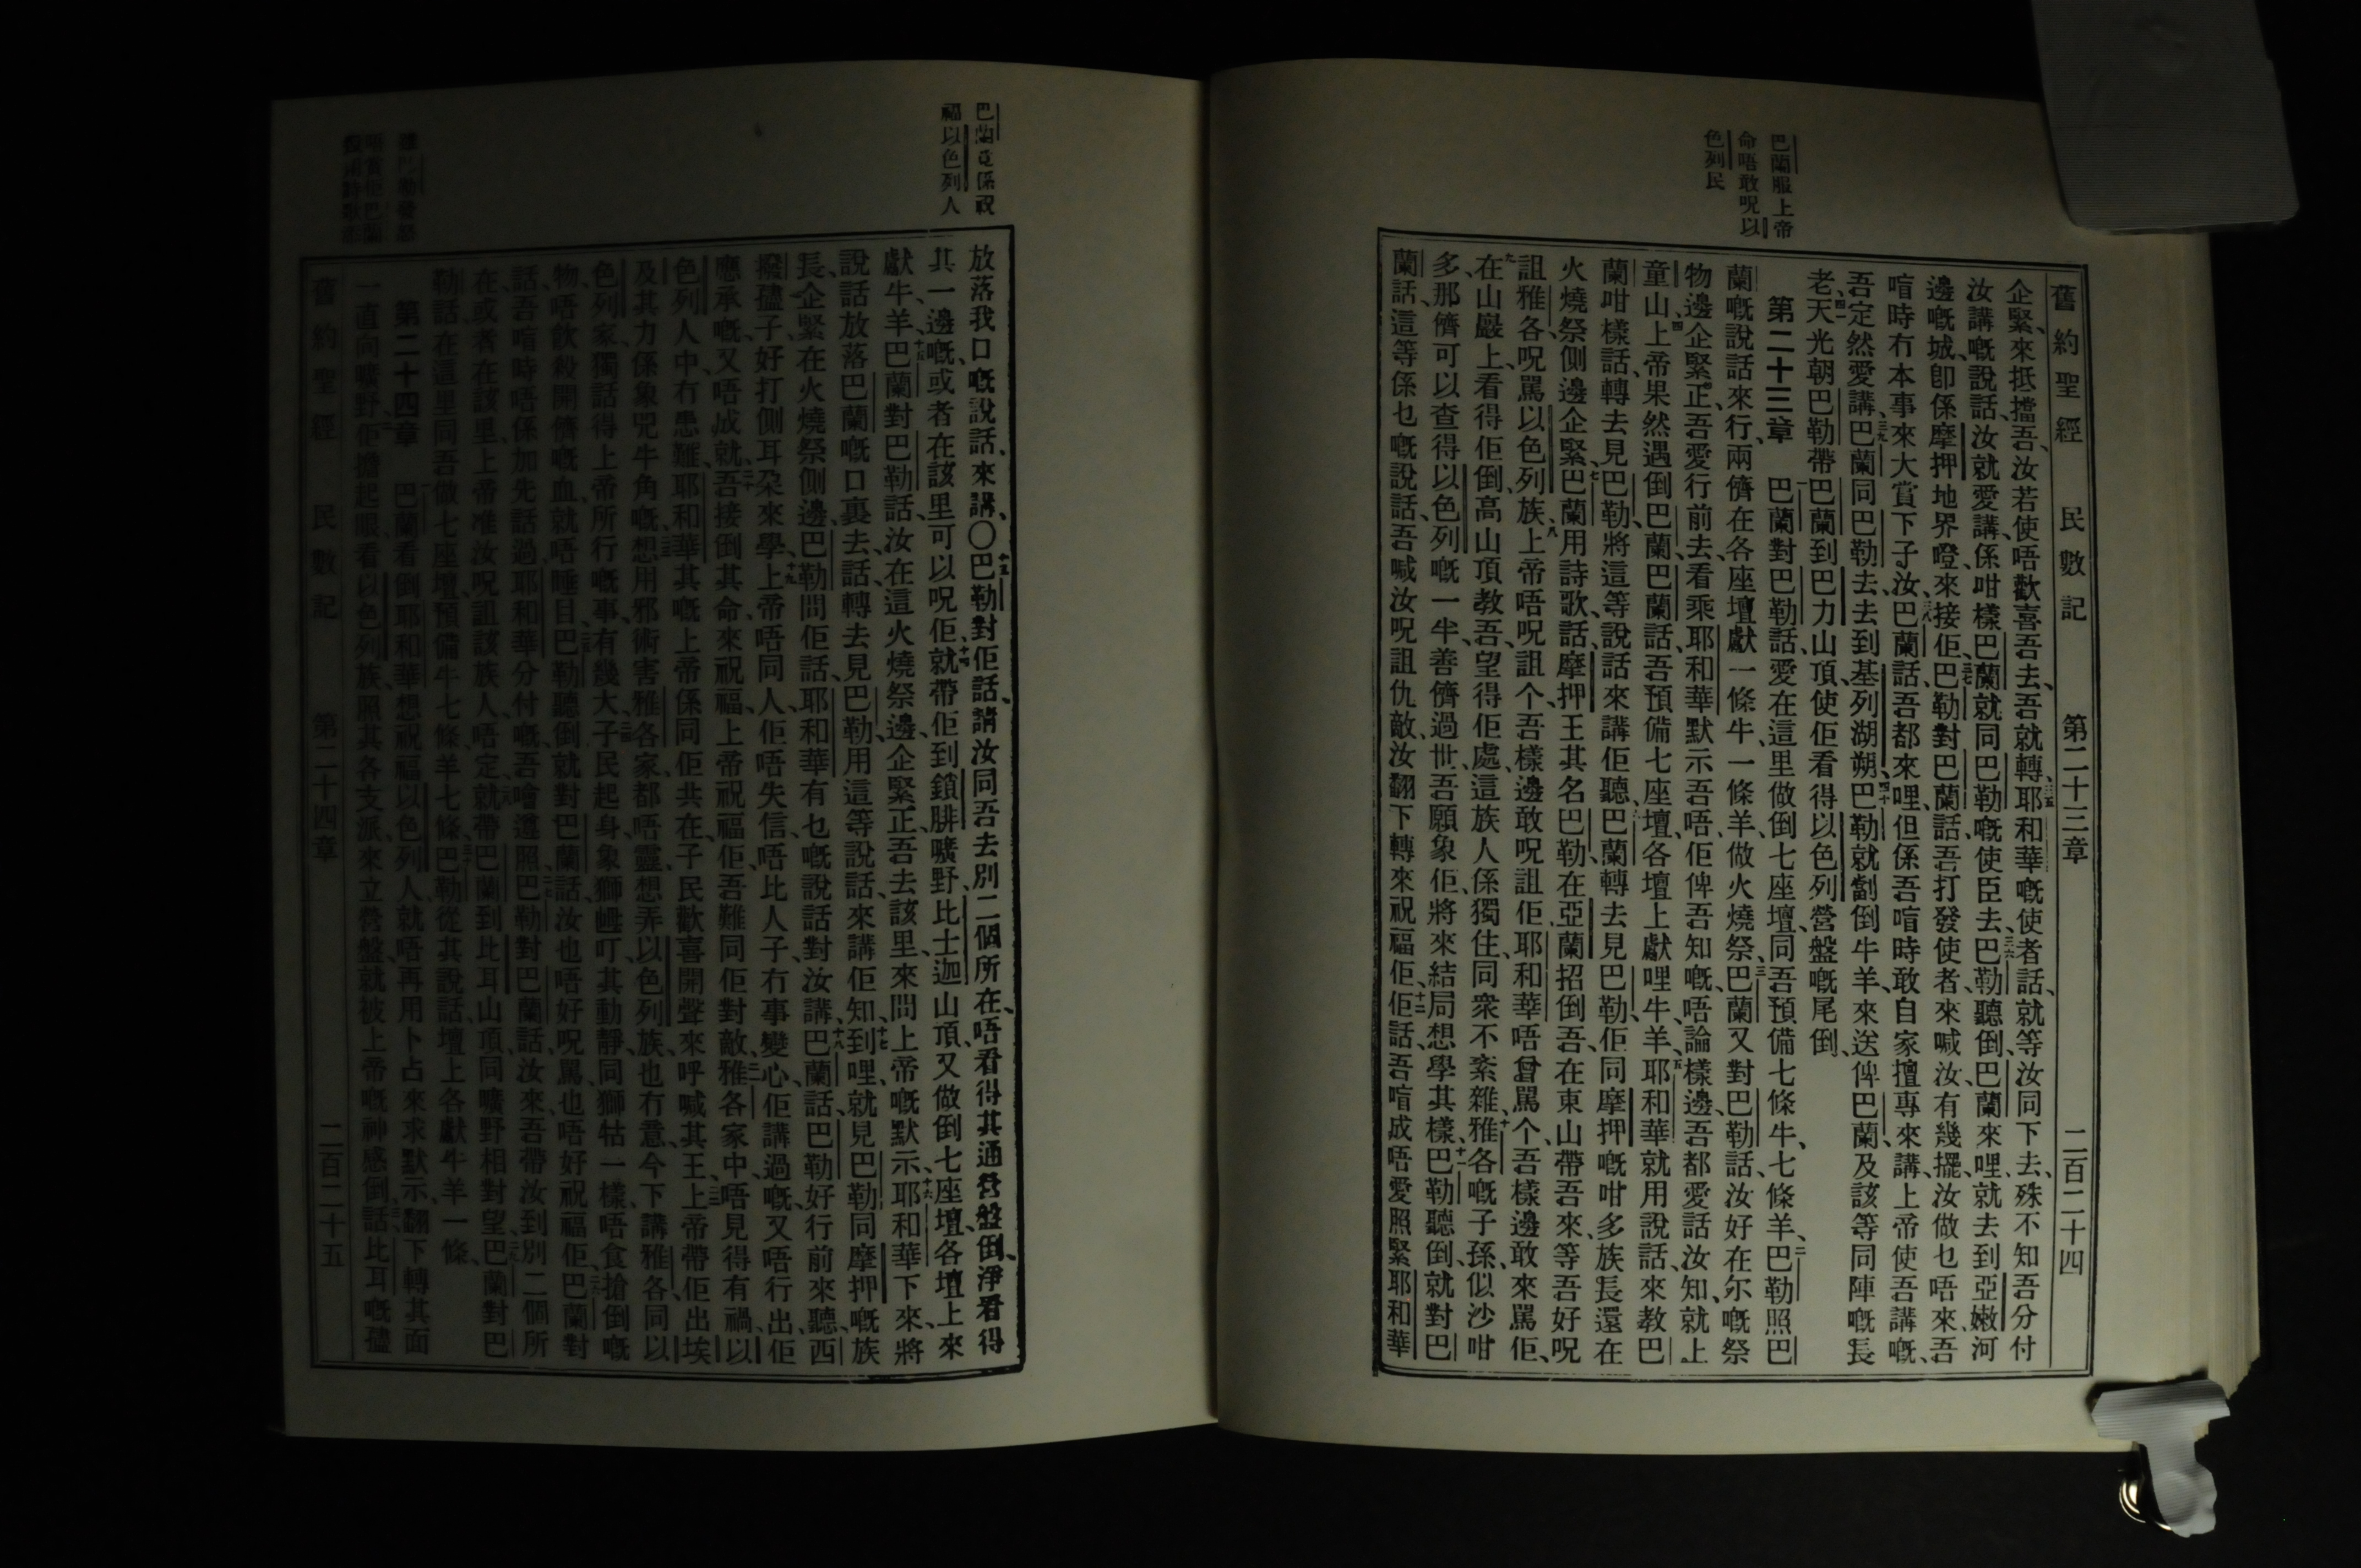 舊約聖經 民數記 第二十三章 二百二十四
巴蘭服上帝
命唔敢呪以
色列民
企緊、來抵擋吾、汝若使唔歡喜吾去、吾就轉、耶和華嘅使者話、就等汝同下去、殊不知吾分付
汝講嘅說話、汝就愛講、係咁樣巴蘭就同巴勒嘅使臣去、巴勒聽倒、巴蘭來哩、就去到亞嫩河
邊嘅城、卽係摩押地界、嶝來接佢、巴勒對巴蘭話、吾打發使者來喊汝、有幾擺、汝做乜唔來、吾
喧時冇本事來大賞下子汝、巴蘭話、吾都來哩、但係吾喧時敢自家擅專來講、上帝使吾講嘅、
吾定然愛講、巴蘭同巴勒去、去到基列湖朔、巴勒就劏倒牛羊、來送俾巴蘭、及該等同陣嘅長
老、天光朝巴勒帶巴蘭到巴力山頂、使佢看得以色列營盤嘅尾倒、
第二十三章 巴蘭對巴勒話、愛在這里做倒七座壇、同吾預備七條牛、七條羊、巴勒照巴
蘭嘅說話來行、兩儕在各座壇、獻一條牛、一條羊、做火燒祭、巴蘭又對巴勒話、汝好在尔嘅祭
物邊企緊、正吾愛行前去、看乘耶和華默示吾唔、佢俾吾知嘅、唔論樣邊、吾都愛話汝知、就上
童山、上帝果然遇倒巴蘭、巴蘭話、吾預備七座壇、各壇上獻哩牛羊、耶和華就用說話來教巴
蘭咁樣話、轉去見巴勒、將這等說話來講佢聽、巴蘭轉去見巴勒、佢同摩押嘅咁多族長還在
火燒祭側邊企緊、巴蘭用詩歌話、摩押王其名巴勒、在亞蘭招倒吾、在東山帶吾來、等吾好呪
詛雅各、呪罵以色列族、上帝唔呪詛个、吾樣邊敢呪詛佢、耶和華唔曾罵个、吾樣邊敢來罵佢、
在山巖上、看得佢倒、高山頂教吾、望得佢處、這族人係獨住、同衆不紊雜、雅各嘅子孫、似沙咁
多、那儕可以查得、以色列嘅一半、善儕過世、吾願象佢、將來結局想學其樣、巴勒聽倒、就對巴
蘭話、這等係乜嘅說話、吾喊汝呪詛仇敵、汝翻下轉來祝福佢、佢話、吾喧成唔愛照緊耶和華
巴蘭竟係祝
福以色列人
放落我口嘅說話、來講、〇巴勒對佢話、請汝同吾去別二個所在、唔看得其通營盤倒、淨看得
其一邊嘅、或者在該里可以呪佢、就帶佢到鎖腓曠野、比士迦山頂、又做倒七座壇、各壇上來
獻牛羊、巴蘭對巴勒話、汝在這火燒祭邊企緊、正吾去該里來問上帝嘅默示、耶和華下來、將
說話放落巴蘭嘅口裏去、話、轉去見巴勒、用這等說話來講佢知、到哩、就見巴勒同摩押嘅族
長、企緊在火燒祭側邊、巴勒問佢話、耶和華有乜嘅說話對汝講、巴蘭話、巴勒好行前來聽、西
撥孻子、好打側耳朶來學、上帝唔同人、佢唔失信、唔比人子冇事變心、佢講過嘅、又唔行出、佢
應承嘅、又唔成就、吾接倒其命來祝福、上帝祝福佢、吾難同佢對敵、雅各家中、唔見得有禍、以
色列人中冇患難、耶和華其嘅上帝係同佢共在、子民歡喜開聲來呼喊其王、上帝帶佢出埃
及、其力係象兕牛角嘅、想用邪術害雅各家、都唔靈、想弄以色列族、也冇意、今下講雅各同以
色列家、獨話得上帝所行嘅事、有幾大、子民起身、象獅𡜵叮、其動靜、同獅牯一樣、唔食搶倒嘅
物、唔飮殺開儕嘅血、就唔睡目、巴勒聽倒就對巴蘭話、汝也唔好呪罵、也唔好祝福佢、巴蘭對
話、吾喧時唔係加先話過、耶和華分付嘅、吾噲遵照、巴勒對巴蘭話、汝來、吾帶汝到別二個所
在、或者在該里、上帝准汝呪詛該族人唔定、就帶巴蘭到比耳山頂、同曠野相對望、巴蘭對巴
勒話、在這里同吾做七座壇、預備牛七條、羊七條、巴勒從其說話、壇上各獻牛羊一條、
第二十四章 巴蘭看倒耶和華想祝福以色列人、就唔再用卜占來求默示、翻下轉其面
一直向曠野、佢擔起眼、看以色列族、照其各支派、來立營盤、就被上帝嘅神感倒、話、比耳嘅孻
舊約聖經 民數記 第二十四章 二百二十五